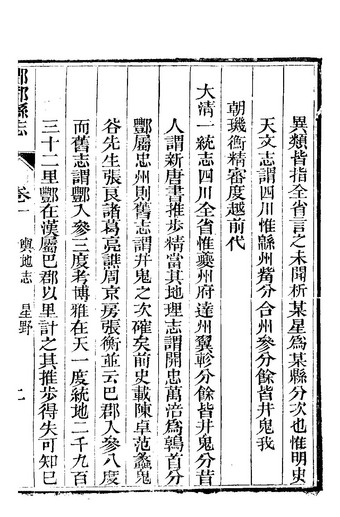 異類皆指全省言之未聞析某星為某縣分次也惟明史
天文志謂四川惟緜州觜分合州參分餘皆井鬼我
朝璣衡精審度越前代
大清一統志四川全省惟夔州府達州翼軫分餘皆井鬼分昔
人謂新唐書推步精當其地理志謂開忠萬涪為鶉首分
酆屬忠州則舊志謂井鬼之次確矣前史載陳卓范蠡鬼
谷先生張良諸葛亮譙周京房張衡並云巴郡入參八度
而舊志謂酆入參三度考博雅在天一度統地二千九百
三十二里酆在漢屬巴郡以里計之其推步得失可知已
酆都縣志
卷一
輿地志 星野
二